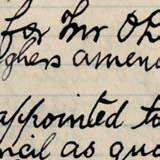 for Mr O
ghers amen
appointed to
ncil as qua